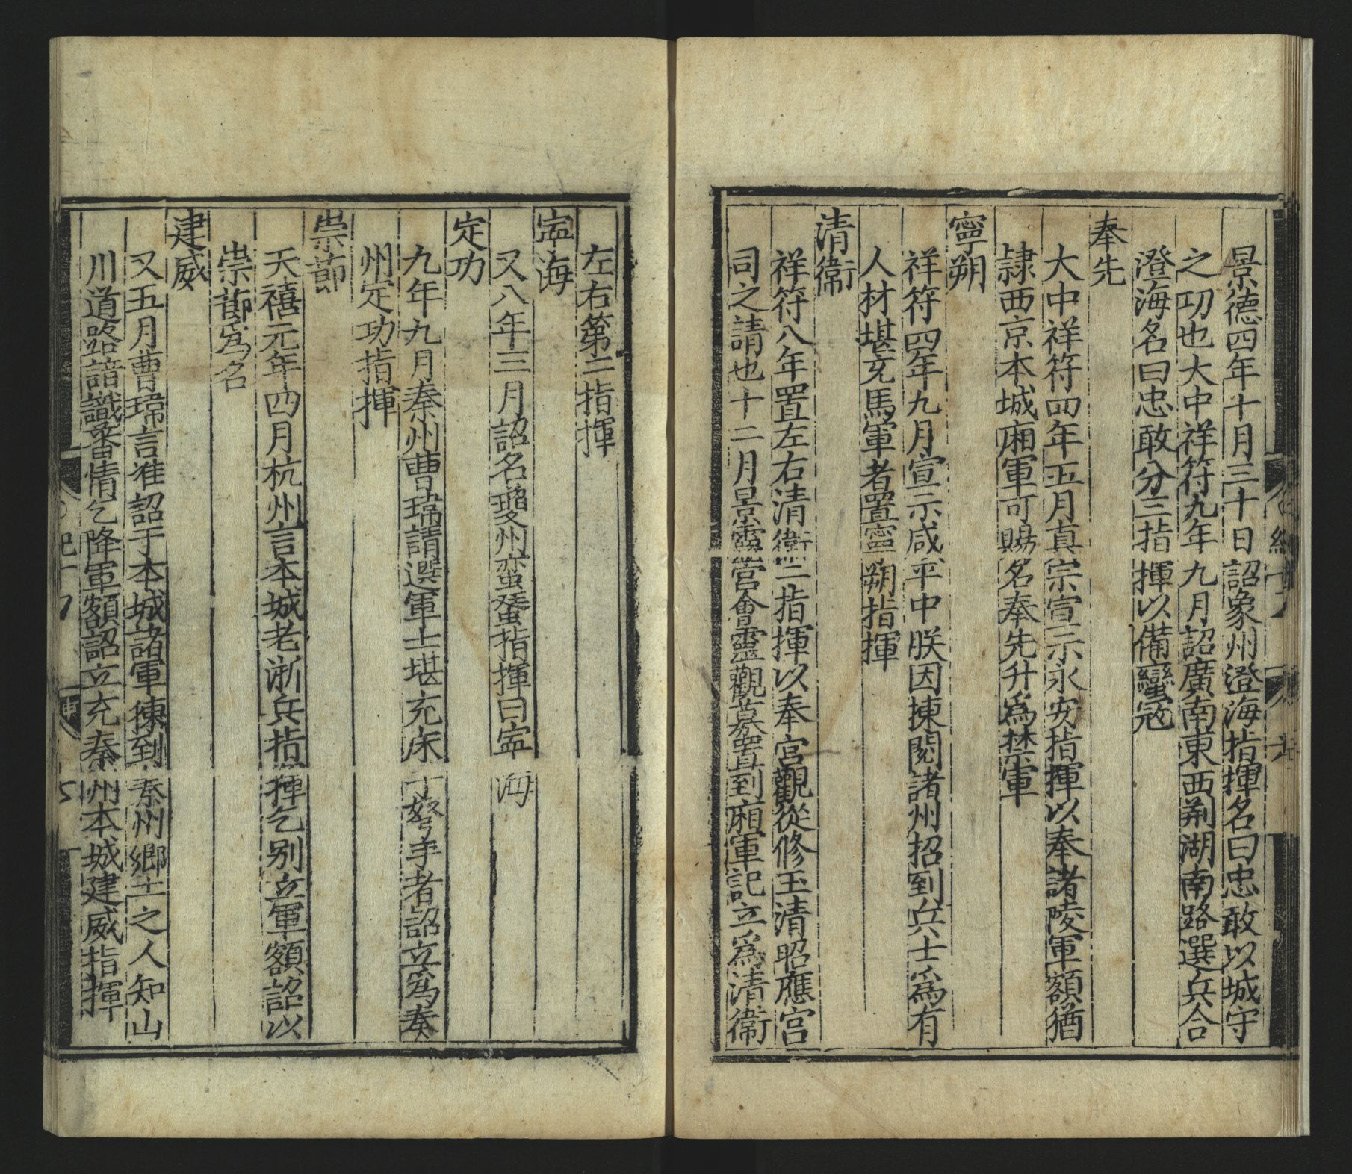 景德四年十月三十日詔象州澄海指揮名曰忠敢以城守
之功也大中祥符九年九月詔廣南東西荆湖南路選兵合
澄海名曰忠敢分三指揮以備蠻寇
奉先
大中祥符四年五月真宗宣示永安指揮以奉諸陵軍額猶
隷西京本城廂軍可賜名奉先升爲禁軍
寧朔
祥符四年九月宣示咸平中朕因揀閱諸州招到兵士爲有
人材堪充馬軍者置寧朔指揮
清衛
祥符八年置左右清衛二指揮以奉宮觀從修玉清昭應宮
司之請也十二月景靈宮會靈觀募置到廂軍記立爲清衛
左右第二指揮
寍海
又八年三月詔名瓊州蛮蜑指揮曰寍海
定功
九年九月秦州曹瑋請選軍士堪充床子弩手者詔立爲秦
州定功指揮
崇節
天禧元年四月杭州言本城老浙兵指揮乞别立軍額詔以
崇節爲名
建威
又五月曹瑋言准詔于本城諸軍揀到秦州鄉土之人知山
川道路諳識蕃情乞降軍額詔立充秦州本城建威指揮